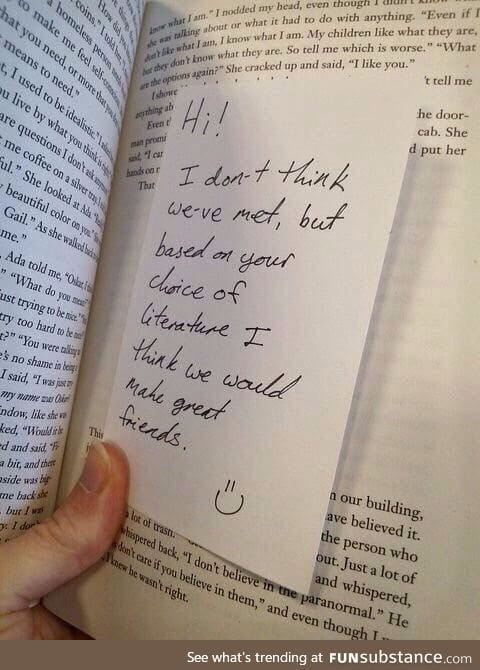 to make me feel self-
a homeless person
coins." I told
that you need, or more than
means to need."
t, I used to be idealistic."
u live by what you think is
are questions I don't ask
me coffee on a silver tray
ful." She looked at Ada
beautiful color on you."
Gail." As she walked back
me."
Ada told me, "Oskar,
" "What do you mean?"
ust trying to be nice."
try too hard to be
t?" "You were talking
e's no shame in being
I said, "I was just
my name was Oskar
ndow, like she was
ked, "Would it be
ed and said,
a bit, and there
side was big
me back she
but I was
know what I am." I nodded my head, even though I didn't know
she was talking about or what it had to do with anything. "Even if I
don't like what I am, I know what I am. My children like what they are,
but they don't know what they are. So tell me which is worse." "What
are the options again?" She cracked up and said, "I like you."
I showe
't tell me
anything ab
Even
he door-
man promi
cab. She
said, "I
d put her
hands on
That
Hi!
I don-t think
we-ve met, but
based on your
choice of
literature I
think we would
make great
friends.
:)
This
n our building,
ave believed it.
the person who
a lot of trash.
out. Just a lot of
whispered back, "I don't believe in the paranormal." He
and whispered,
don't care if you believe in them," and even though I
knew he wasn't right.
See what's trending at FUNsubstance.com